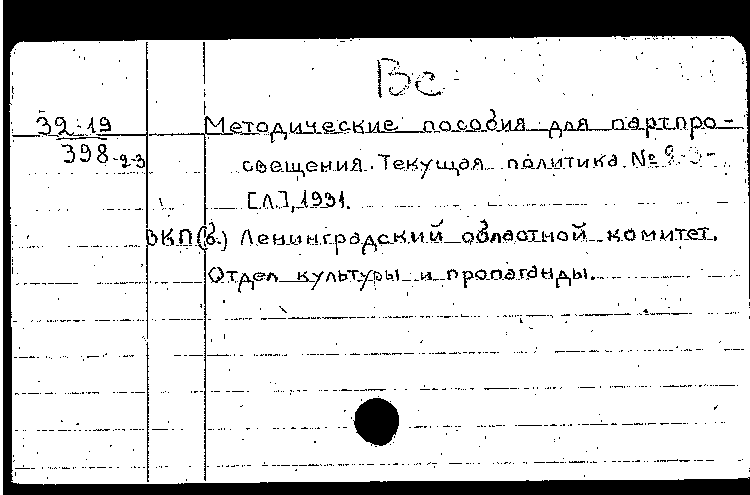 Вс
32-19
Методические пособия для партпро-
398-2-3
свещения. Текущая политика. № 2-3-
[Л.], 1931.
ВКП(б.) Ленинградский областной комитет.
Отдел культуры и пропаганды.